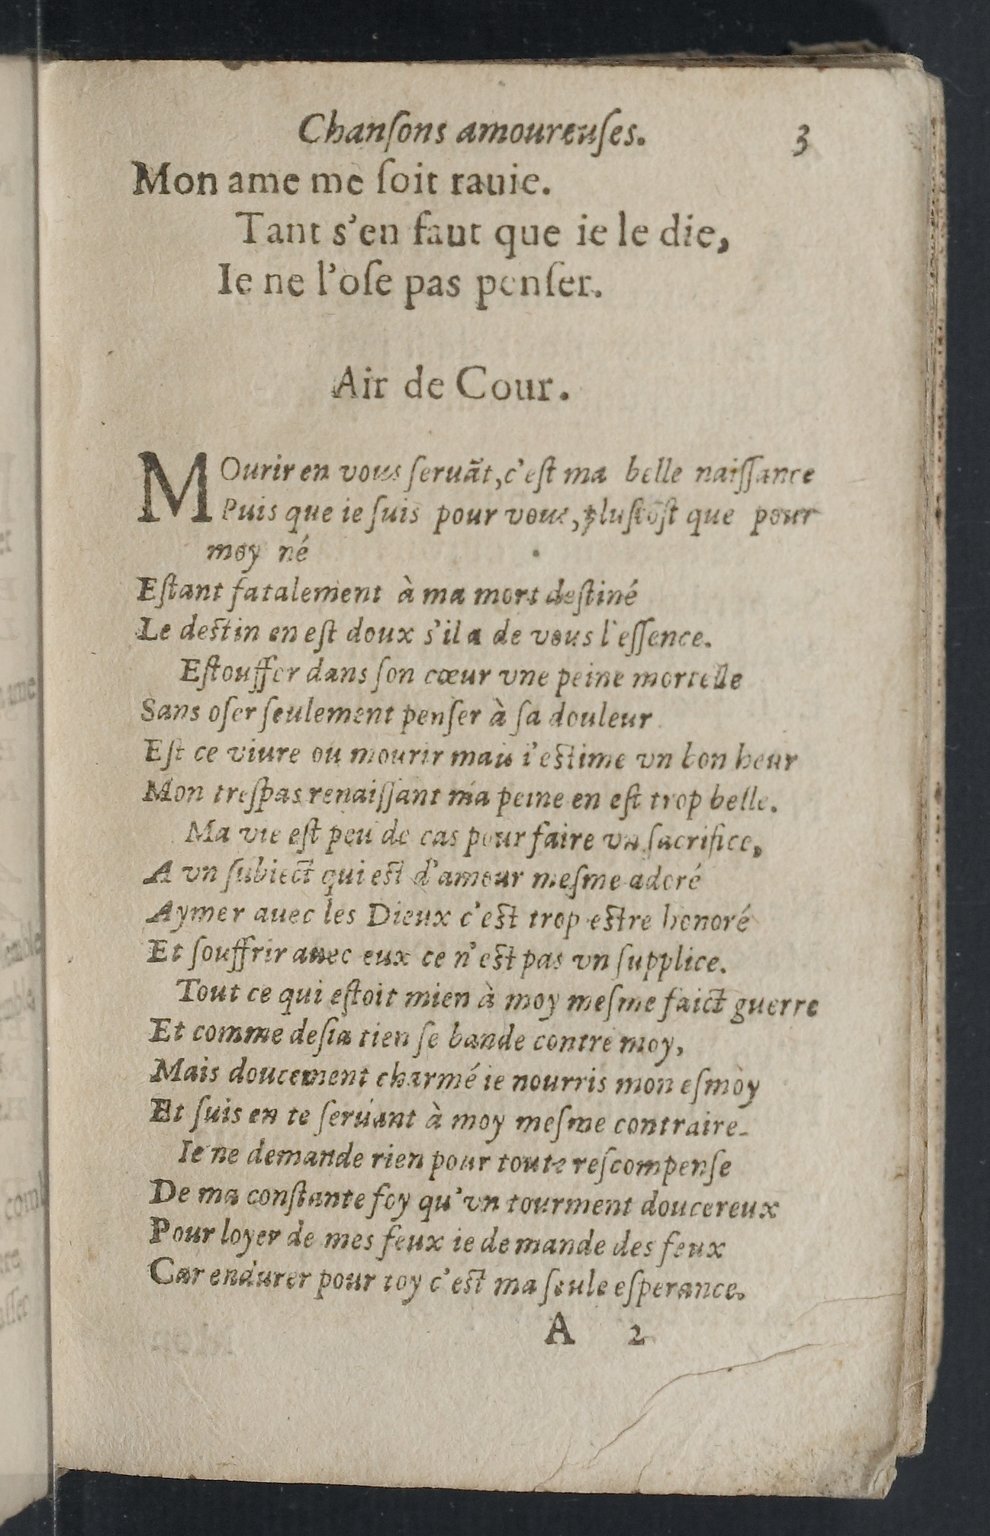 Chanſons amoureuſes. 3
Mon ame me ſoit rauie.
Tant s'en faut que ie le die,
Ie ne l'oſe pas penſer.
Air de Cour.
MOurir en vous ſeruãt, c'eſt ma belle naiſſance
Puis que ie ſuis pour vous, pluſtoſt que pour
moy né
Eſtant fatalement à ma mort deſtiné
Le deſtin en eſt doux s'il a de vous l'eſſence.
Eſtouffer dans ſon cœur vne peine mortelle
Sans oſer ſeulement penſer à ſa douleur
Eſt ce viure ou mourir mais i'eſtime vn bon heur
Mon treſpas renaiſſant ma peine en eſt trop belle.
Ma vie eſt peu de cas pour faire vn ſacrifice,
A vn ſubiect qui eſt d'amour meſme adoré
Aymer auec les Dieux c'eſt trop eſtre honoré
Et ſouffrir auec eux ce n'eſt pas vn ſupplice.
Tout ce qui eſtoit mien à moy meſme faict guerre
Et comme deſia tien ſe bande contre moy,
Mais doucement charmé ie nourris mon eſmoy
Et ſuis en te ſeruant à moy meſme contraire.
Ie ne demande rien pour toute reſcompenſe
De ma conſtante foy qu'vn tourment doucereux
Pour loyer de mes feux ie demande des feux
Car endurer pour toy c'eſt ma ſeule eſperance.
A 2